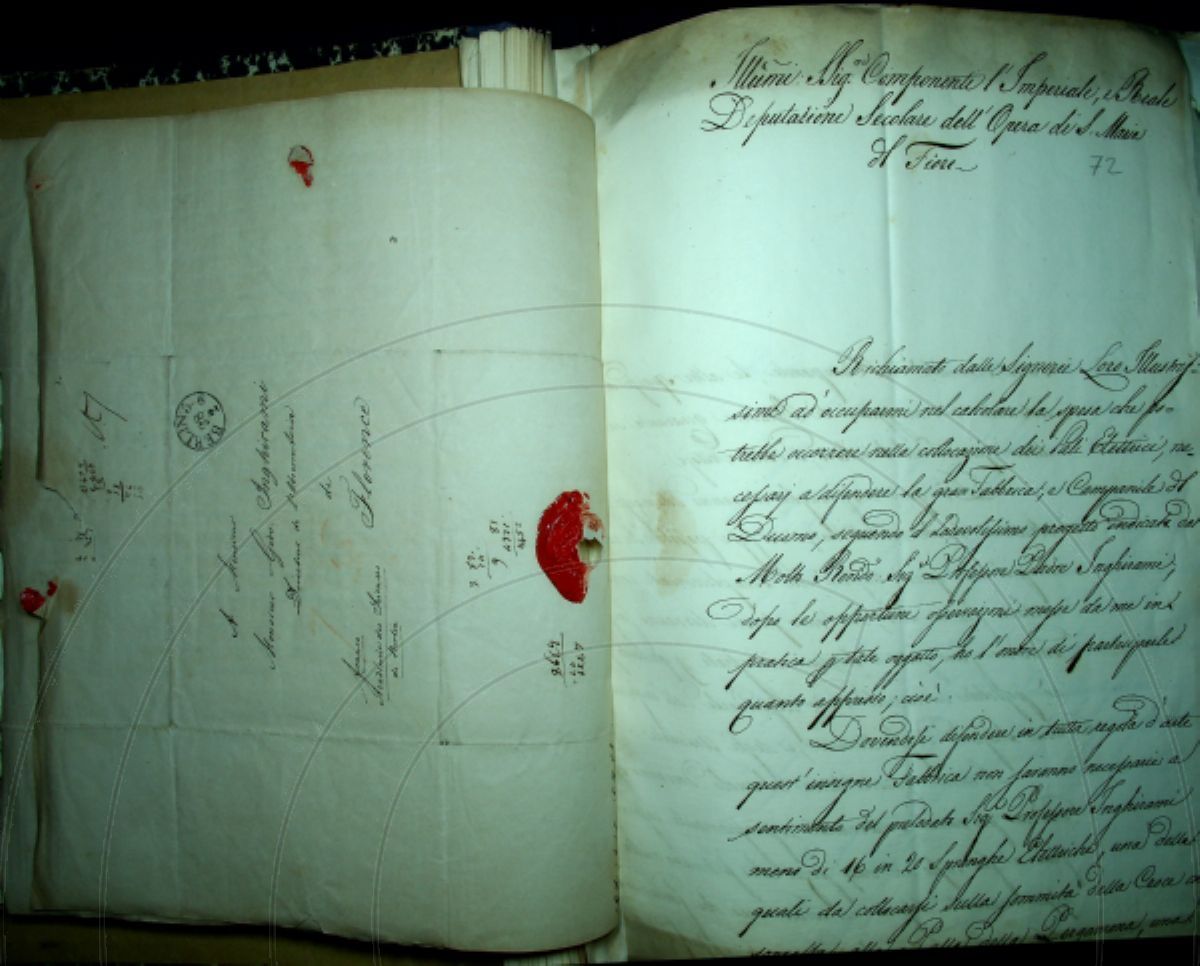 A Monsieur
Monsieur Inghirami
Directeur de l'observatoire
di
Florence
BERLIN
9
81
4321
3227
Illũmi Sig.ri Componenti l'Imperiale, e Reale
Deputazione Secolare dell'Opera di S. Maria
del Fiore
72
Richiamato dalle Signorie Loro Illustris-
simi ad occuparmi nel calcolare la spesa che po-
trebbe occorrere nella collocazione dei Pali Elettrici, ne-
cessarj a difendere la gran Fabbrica, e Campanile del
Duomo, secondo il progetto indicato dal
Molto Rendo. Sig.e Professore Padre Inghirami;
dopo le opportune osservazioni messe da me in
pratica p tale oggetto, ho l'onore di partecipale
quanto appresso; cioè.
Dovendosi difendere in tutta regola d'arte
quest'insigne Fabbrica non saranno necessarie a
sentimento del prelodato Sig. Professore Inghirami
meno di 16 in 20 Spranghe Elettriche, una delle
quali da collocarsi sulla sommità della Croce
Palla della Pergamena, una